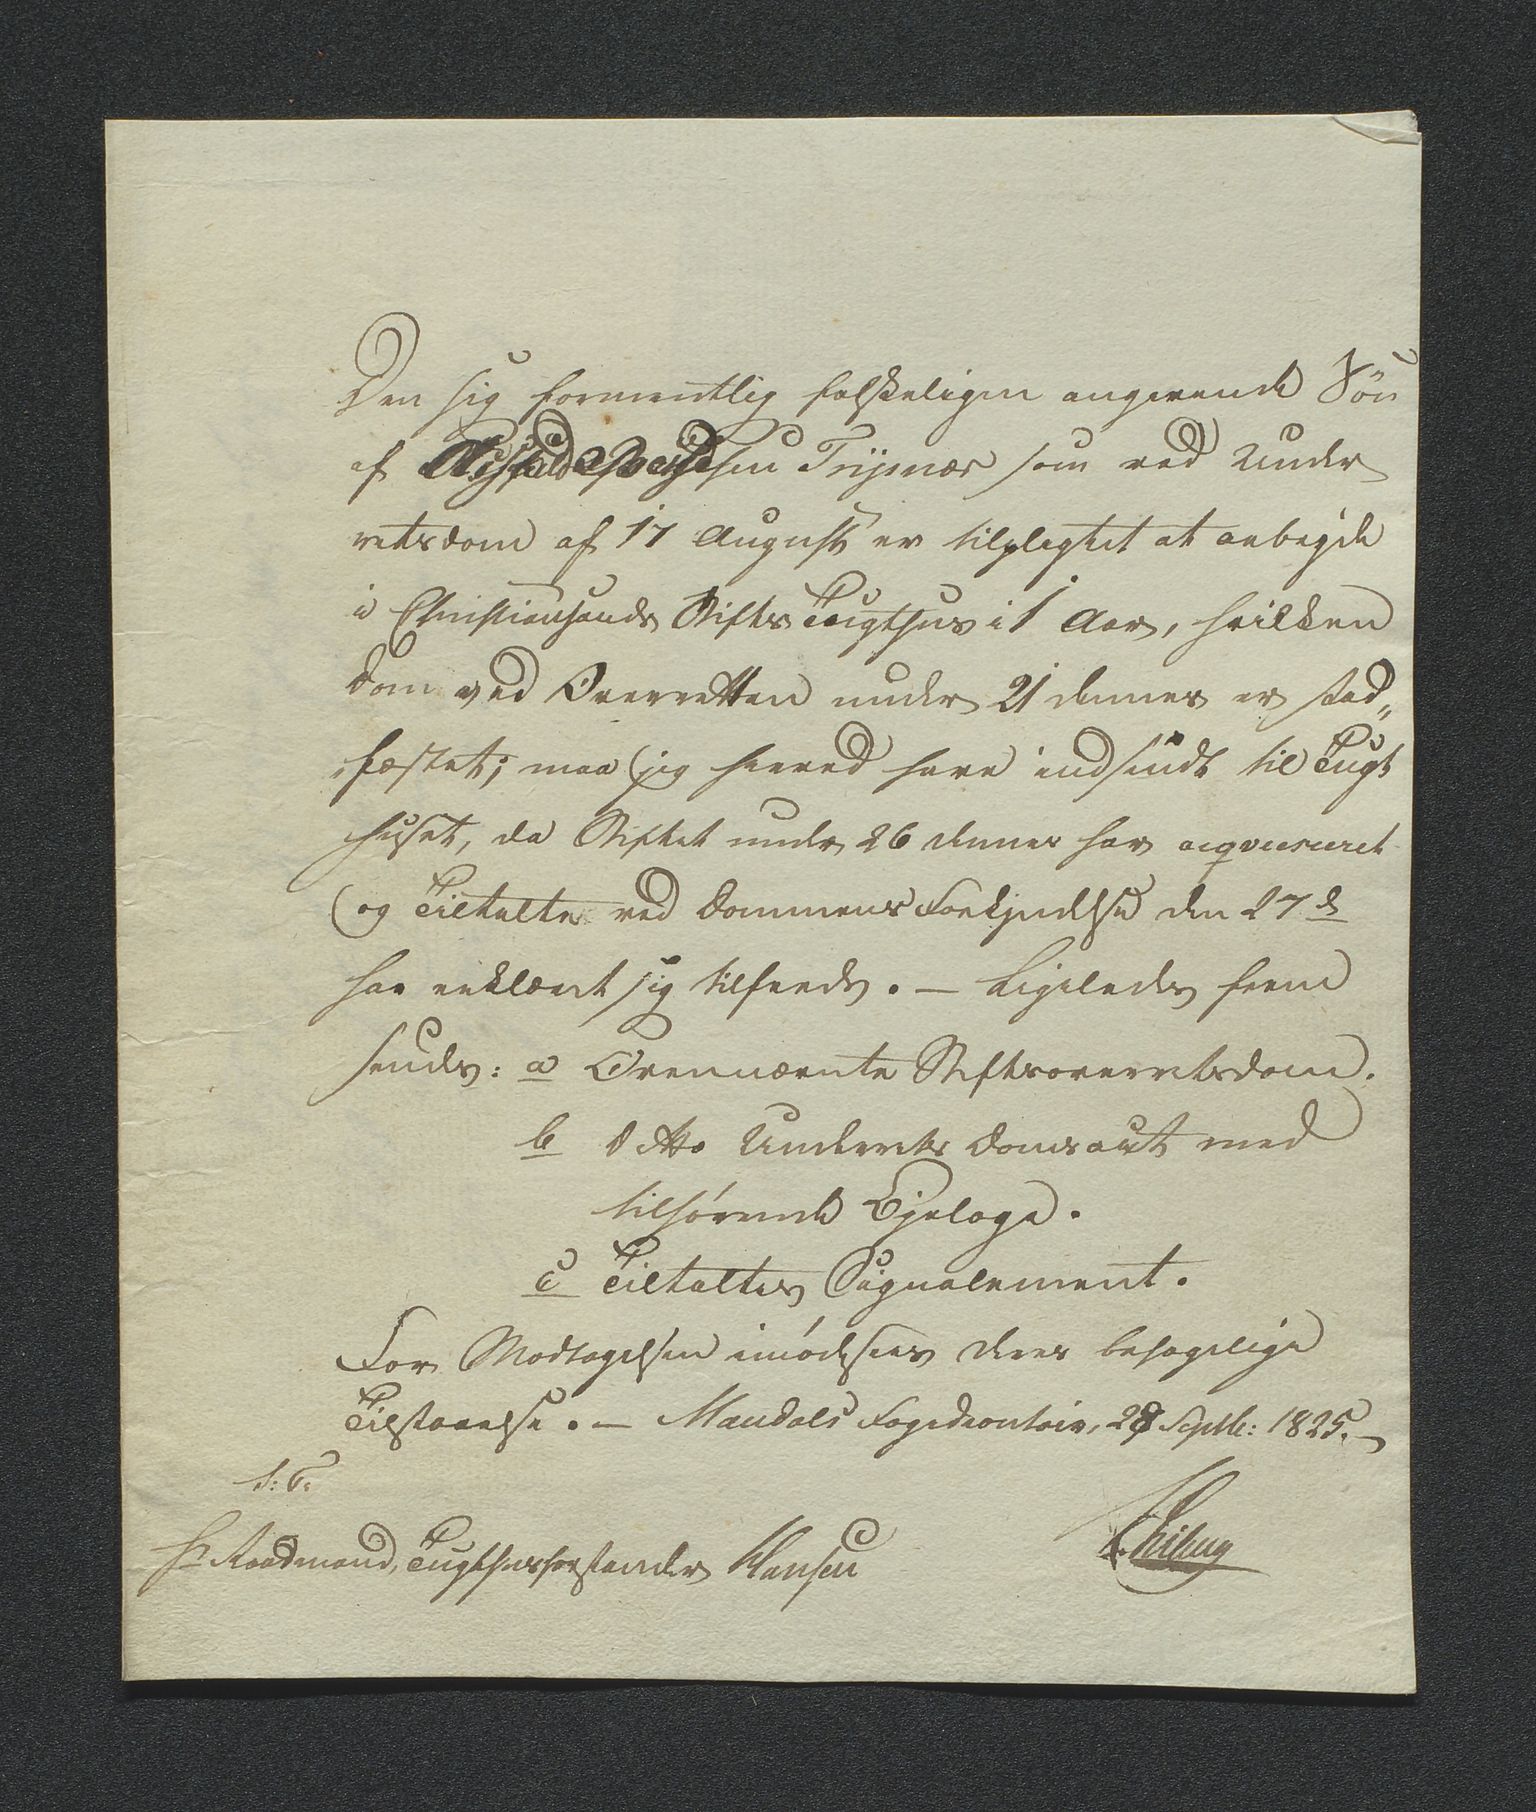 Den sig formentlig falskeligen angivende Søn
af Trysnæs som ved Under
retsdom af 17 August er tilpligtet at arbeide
i Christiansands Stifts Tugthus i 1 Aar, hvilken
Dom ved Overretten under 21 dennes er stad„
„fæstet; maa jeg herved have indsendt til Tugt
huset, da Stiftet under 26 dennes har acqviesceret
og Tiltalte ved Dommens Forkyndelse den 27 d
har erklært sig tilfreds. – Ligeledes frem
sendes: a Ovennævnte Stiftsoverretsdom.
b ditto Underrets Domsact med
tilhørende Bielage.
c Tiltaltes Signalement.
For Modtagelsen imødesees deres behagelige
Tilstaaelse. – Mandals Fogedcontoir, 28 Septb: 1825. –
S: T.
Hr Raadmand, Tugthusforstander Hansen